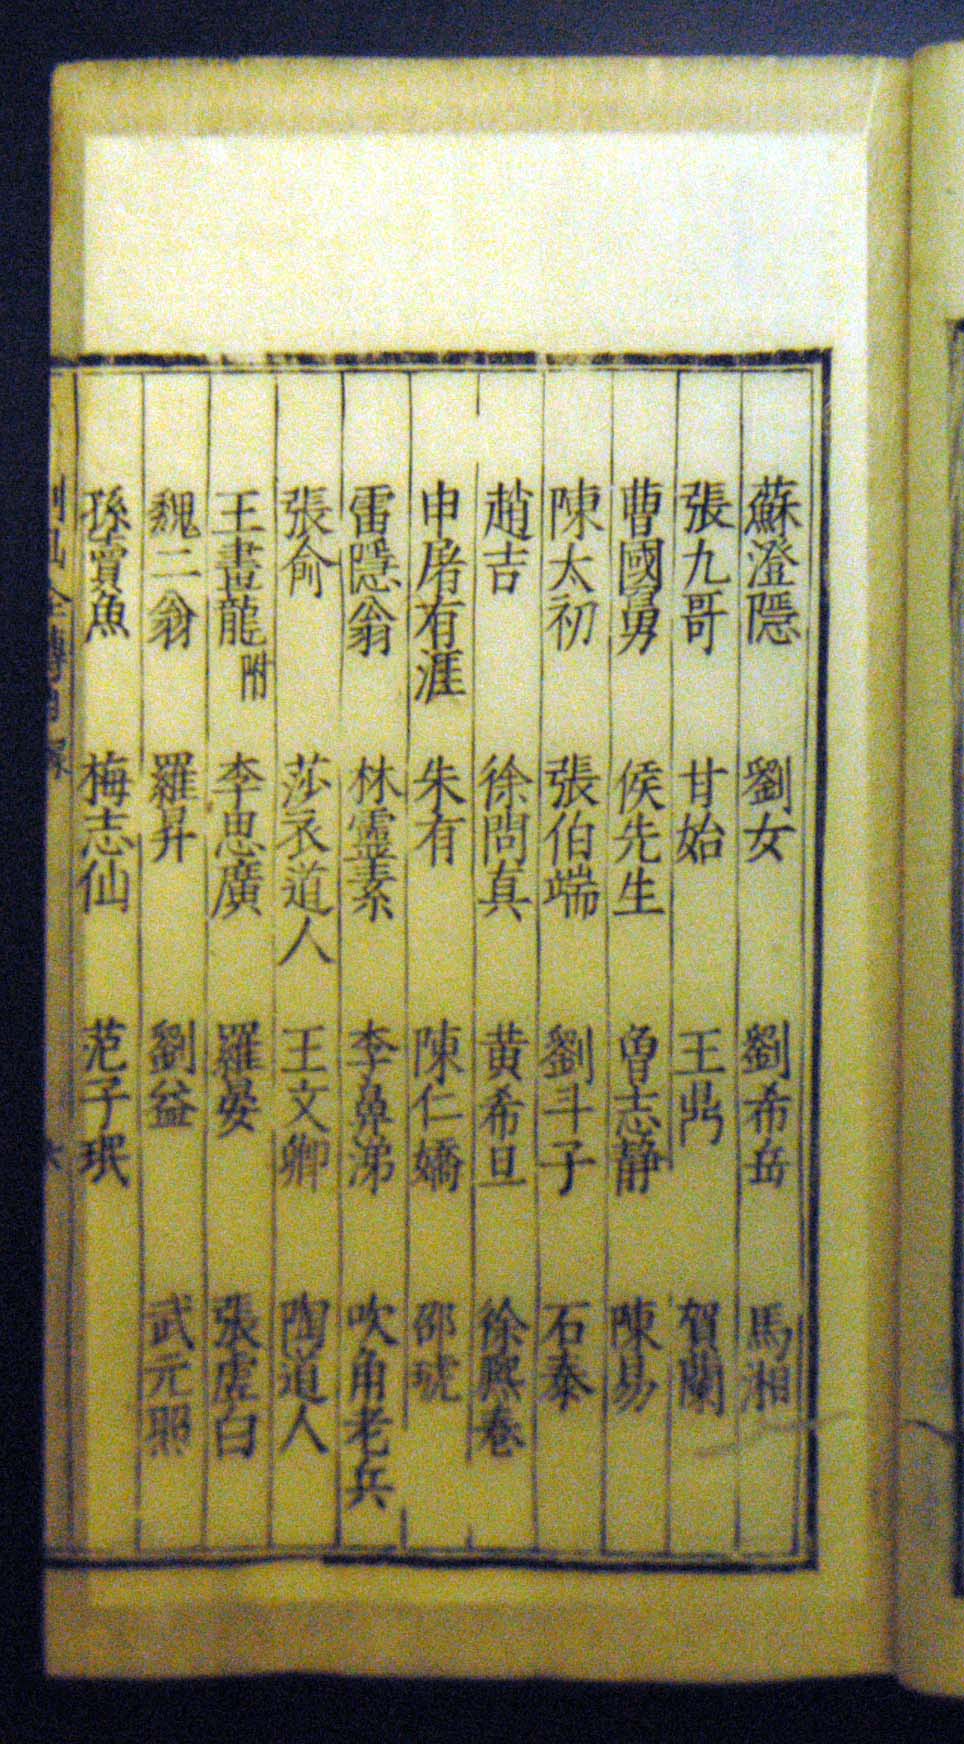 蘇澄隱 劉女 劉希岳 馬湘
張九哥 甘始 王鼎 賀蘭
曹國舅 侯先生 魯志靜 陳易
陳太初 張伯端 劉斗子 石泰
趙吉 徐問真 黃希旦 徐熙春
申屠有涯 朱有 陳仁嬌 邵琥
雷隱翁 林靈素 李鼻涕 吹角老兵
張俞 莎衣道人 王文卿 陶道人
王晝龍附 李思廣 羅晏 張虛白
魏二翁 羅昇 劉益 武元照
孫賣魚 梅志仙 范子珉
列仙全傳目錄